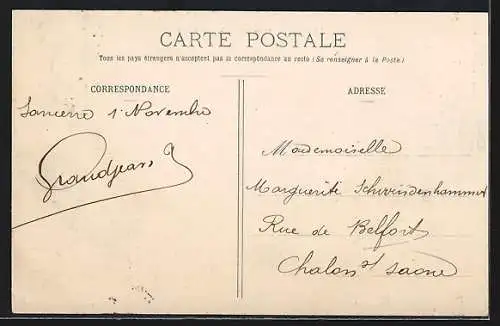 CARTE POSTALE
Tous les pays étrangers n'acceptent pas la correspondance au recto (Se renseigner à la Poste)
CORRESPONDANCE
Sancerre 1r Novembre
Grandjean
ADRESSE
Mademoiselle
Marguerite Schwindenhammer
Rue de Belfort
Chalon s/ Saone